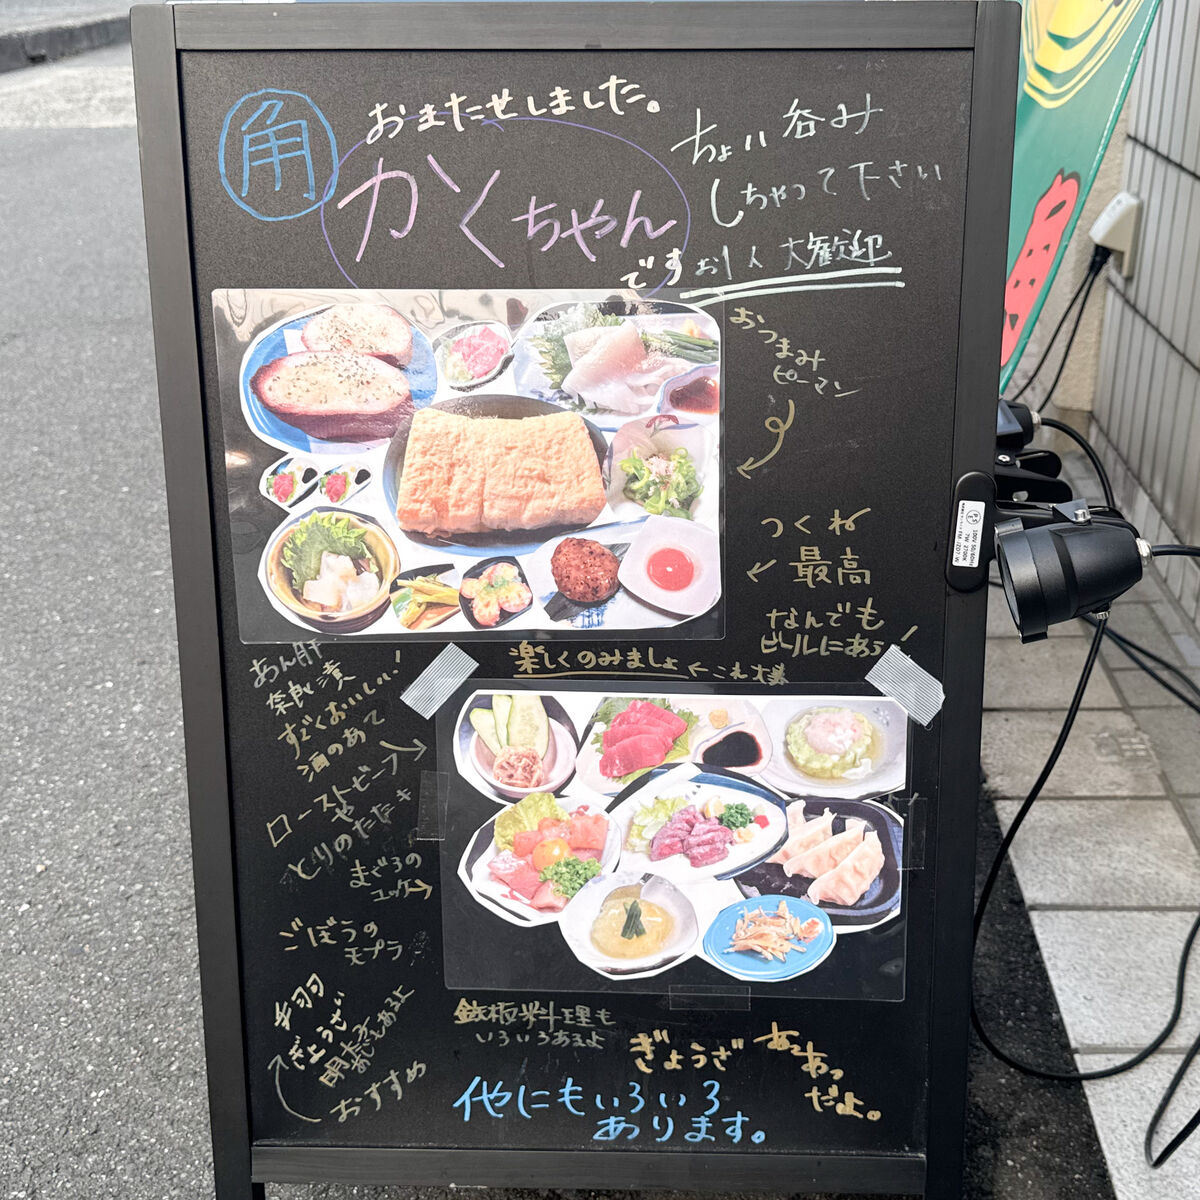 角
おまたせしました。
かくちゃん
です
ちょい呑み
しちゃって下さい
お1人大歓迎
おつまみ
ピーマン
つくね
最高
なんでも
ビールにあう!
楽しくのみましょ
あん肝
奈良漬
すごくおいしい!
酒のあて
ローストビーフ
や
とりのたたき
まぐろの
ユッケ
ごぼうの
モプラ
手羽
ぎょうざい
明太子
あじもあるよ
おすすめ
鉄板料理も
いろいろあるよ
ぎょうざ
あつあつ
だよ。
他にもいろいろ
あります。